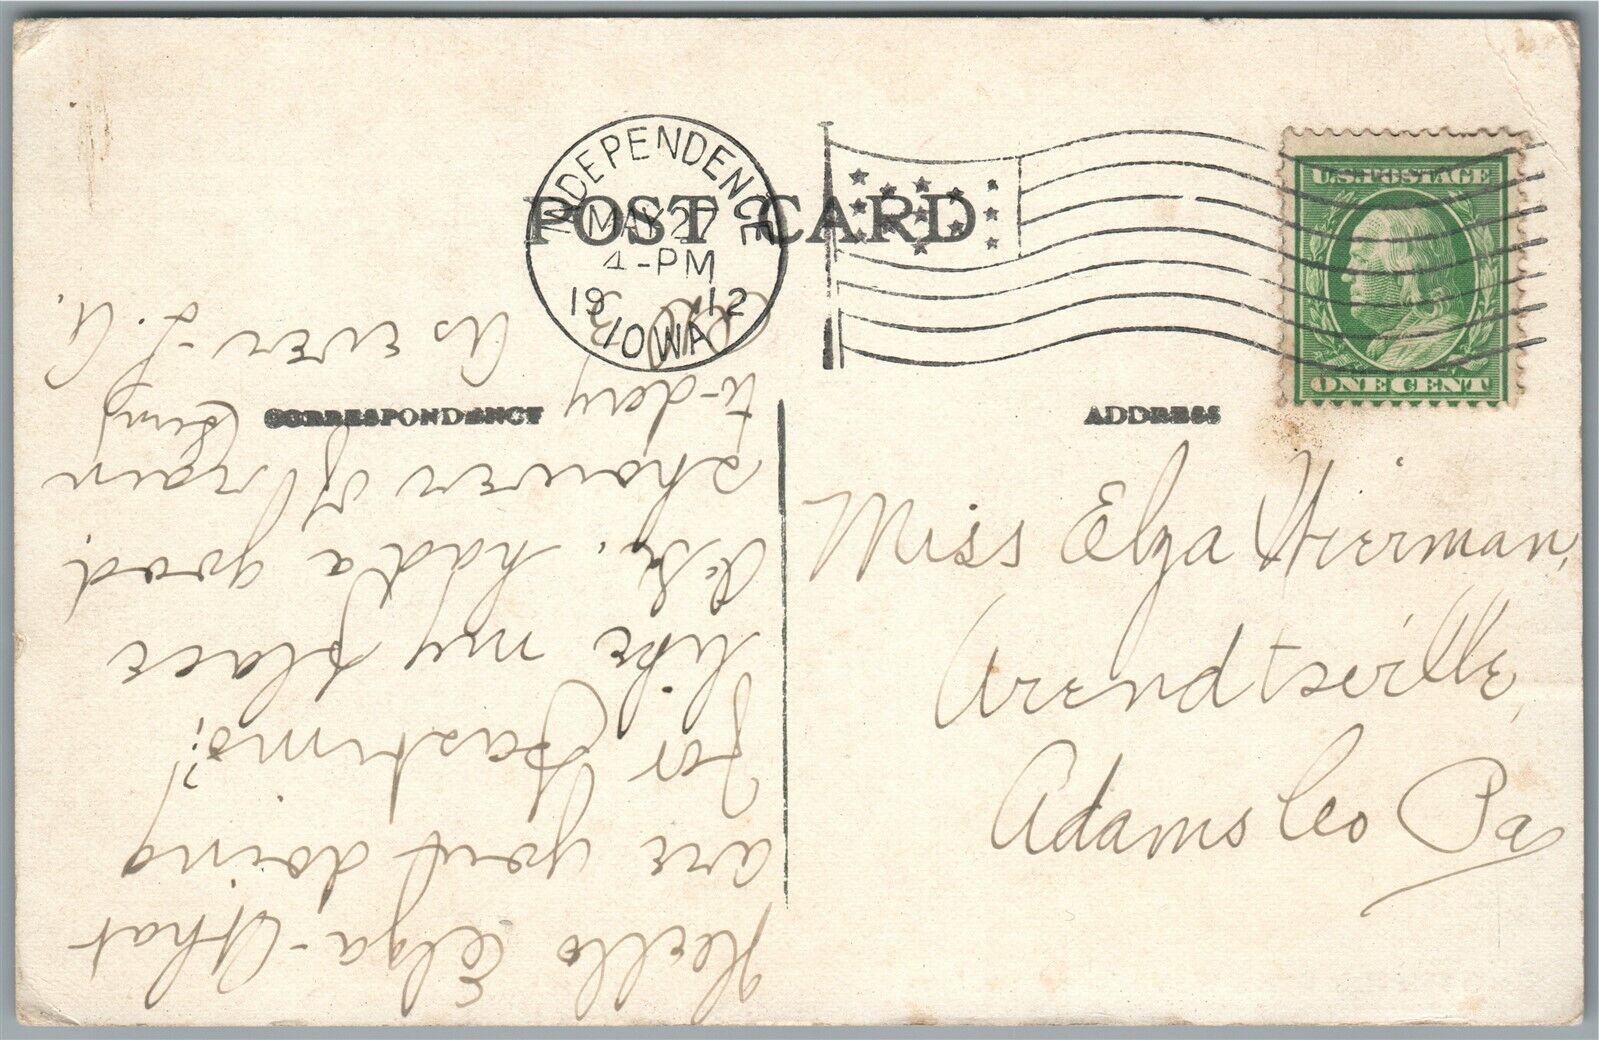 INDEPENDENCE
MAY 27
4-PM
19 12
IOWA
POST CARD
U.S. POSTAGE
ONE CENT
CORRESPONDENCE
ADDRESS
Miss Elza Hierman,
Arendtsville,
Adams Co Pa
Hello Elza - What
are you doing
for Pastime?
like my place
had a good
shower of rain
to-day
As ever - L. A.